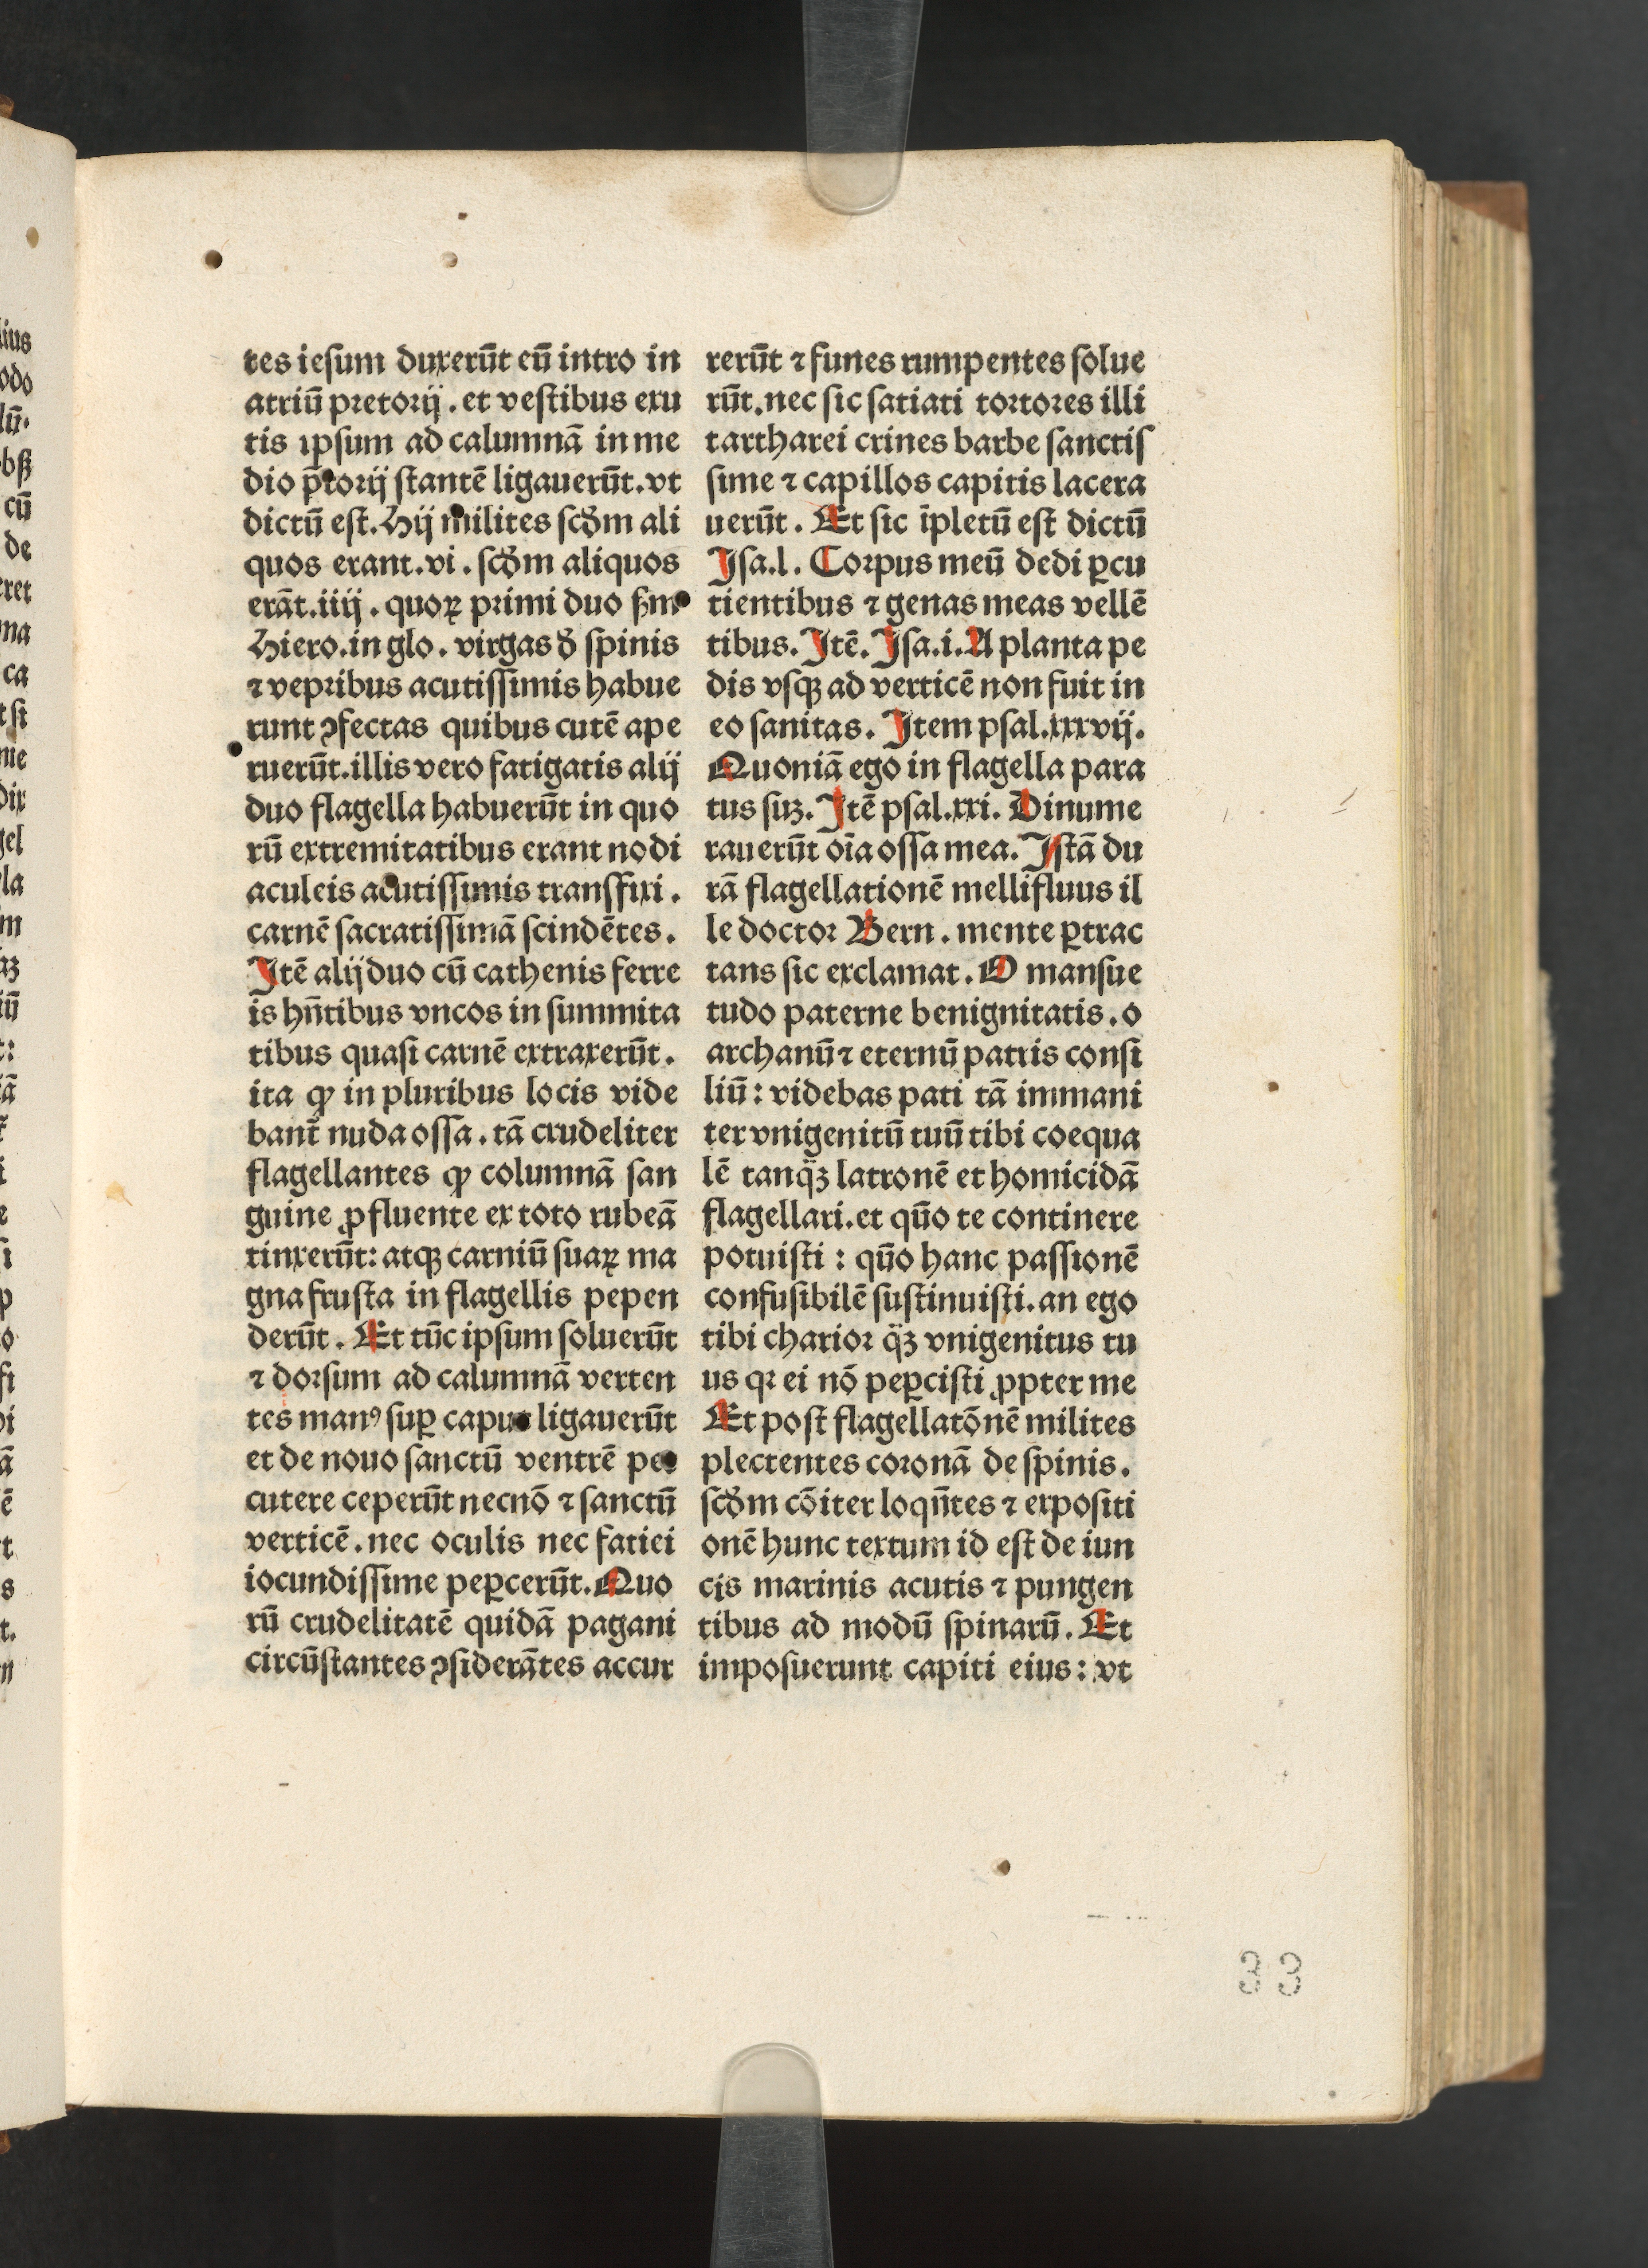 tes iesum duxerūt eū intro in
atriū pretorij. et vestibus exu
tis ipsum ad calumnā in me
dio p̄torij stantē ligauerūt. vt
dictū est. Hij milites scd̄m ali
quos erant. vi. scd̄m aliquos
erāt. iiij. quoꝝ primi duo ẜm
Hiero. in glo. virgas đ spinis
⁊ vepribus acutissimis habue
runt ꝯfectas quibus cutē ape
ruerūt. illis vero fatigatis alij
duo flagella habuerūt in quo
rū extremitatibus erant nodi
aculeis acutissimis transfixi.
carnē sacratissimā scindētes.
Itē alij duo cū cathenis ferre
is hn̄tibus vncos in summita
tibus quasi carnē extraxerūt.
ita ꝙ in pluribus locis vide
bant̄ nuda ossa. tā crudeliter
flagellantes ꝙ columnā san
guine ꝓfluente ex toto rubeā
tinxerūt: atqꝫ carniū suaꝝ ma
gna frusta in flagellis pepen
derūt. Et tūc ipsum soluerūt
⁊ dorsum ad calumnā verten
tes manꝰ suꝑ caput ligauerūt
et de nouo sanctū ventrē per
cutere ceperūt necnō ⁊ sanctū
verticē. nec oculis nec faciei
iocundissime peꝑcerūt. Quo
rū crudelitatē quidā pagani
circūstantes ꝯsiderātes accur
rerūt ⁊ funes rumpentes solue
rūt. nec sic satiati tortores illi
tartharei crines barbe sanctis
sime ⁊ capillos capitis lacera
uerūt. Et sic īpletū est dictū
Isa. l. Corpus meū dedi ꝑcu
tientibus ⁊ genas meas vellē
tibus. Itē. Isa. i. A planta pe
dis vsqꝫ ad verticē non fuit in
eo sanitas. Item psal. xxxvij.
Quoniā ego in flagella para
tus suꝫ. Itē psal. xxi. Dinume
rauerūt oīa ossa mea. Istā du
rā flagellationē mellifluus il
le doctor Bern. mente ꝑtrac
tans sic exclamat. O mansue
tudo paterne benignitatis. o
archanū ⁊ eternū patris consi
liū: videbas pati tā immani
ter vnigenitū tuū tibi coequa
lē tanq̈ꝫ latronē et homicidā
flagellari. et quō te continere
potuisti: quō hanc passionē
confusibilē sustinuisti. an ego
tibi charior q̈ꝫ vnigenitus tu
us qꝛ ei nō peꝑcisti ꝓpter me
Et post flagellatōnē milites
plectentes coronā de spinis.
scd̄m cōiter loqn̄tes ⁊ expositi
onē hunc textum id est de iun
cis marinis acutis ⁊ pungen
tibus ad modū spinarū. Et
imposuerunt capiti eius: vt
33